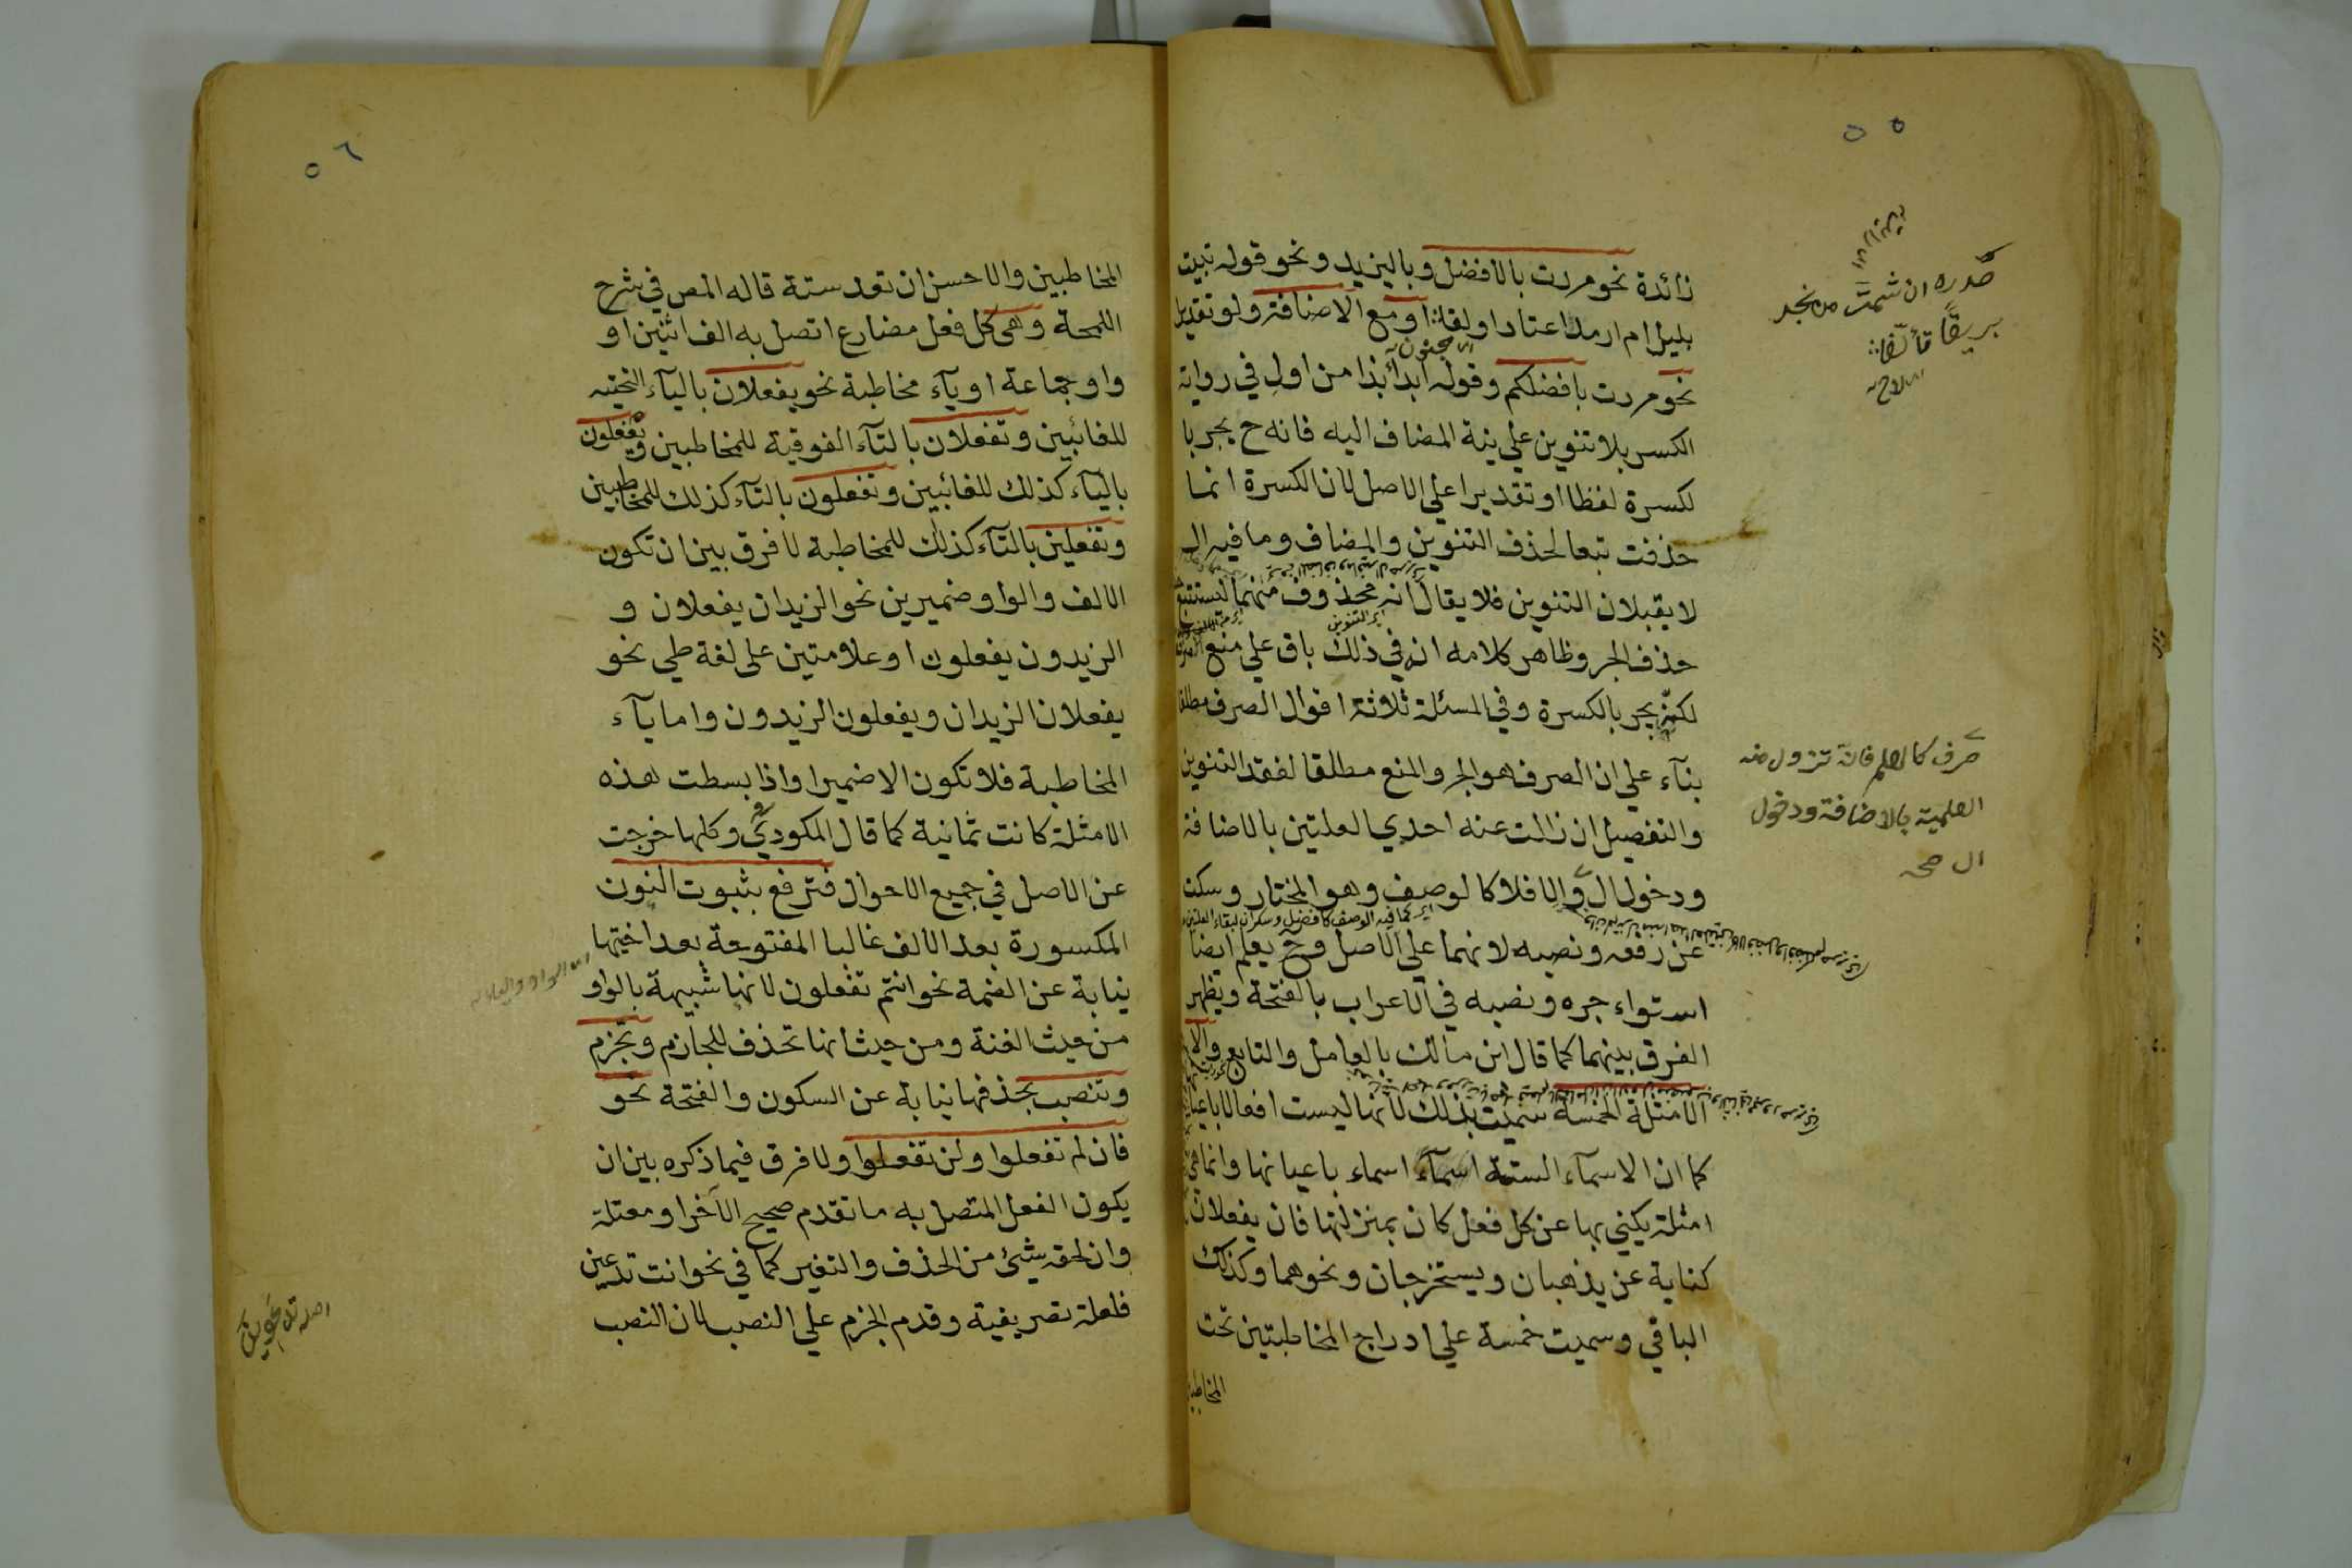 ٥٥
صدره ان شمت من نجد
بريقا تألقا
زائدة نحو مررت بالافضل وباليزيد ونحو قوله تبيت
بليل ام ارمد اعتاد اولقا او مع الاضافة ولو تقديرا
نحو مررت بافضلكم وقوله ابدأ بذا من اول في رواية
الكسر بلا تنوين علي نية المضاف اليه فانه ح يجر با
لكسرة لفظا او تقديرا علي الاصل لان الكسرة انما
حذفت تبعا لحذف التنوين والمضاف وما فيه ال
لا يقبلان التنوين فلا يقال انه محذوف منهما ليستتبع
حذف الجر وظاهر كلامه انه في ذلك باق علي منع الصرف
لكنه يجر بالكسرة وفي المسئلة ثلاثة اقوال الصرف مطلقا
بنآء علي ان الصرف هو الجر والمنع مطلقا لفقد التنوين
والتفصيل ان زالت عنه احدي العلتين بالاضافة
ودخول ال والا فلا كالوصف وهو المختار وسكت
عن رفعه ونصبه لانهما علي الاصل وح يعلم ايضا
استواء جره ونصبه في الاعراب بالفتحة ويظهر
الفرق بينهما كما قال ابن مالك بالعامل والتابع والا
الامثلة الخمسة سميت بذلك لانها ليست افعالا باعيانها
كما ان الاسمآء الستة اسمآء اسماء باعيانها وانما هي
امثلة يكني بها عن كل فعل كان بمنزلتها فان يفعلان
كناية عن يذهبان ويستخرجان ونحوهما وكذلك
الباقي وسميت خمسة علي ادراج المخاطبتين تحت
المخاطبين
صرف كالعلم فانه تزول منه
العلمية بالاضافة ودخول
ال صح
٥٦
المخاطبين والاحسن ان تعد ستة قاله المص في شرح
اللمحة وهي كل فعل مضارع اتصل به الف اثنين او
واو جماعة او يآء مخاطبة نحو يفعلان باليآء التحتية
للغائبين وتفعلان بالتآء الفوقية للمخاطبين ويفعلون
باليآء كذلك للغائبين وتفعلون بالتآء كذلك للمخاطبين
وتفعلين بالتآء كذلك للمخاطبة لا فرق بين ان تكون
الالف والواو ضميرين نحو الزيدان يفعلان و
الزيدون يفعلون او علامتين على لغة طي نحو
يفعلان الزيدان ويفعلون الزيدون واما يآء
المخاطبة فلا تكون الا ضميرا واذا بسطت هذه
الامثلة كانت ثمانية كما قال المكودي وكلها خرجت
عن الاصل في جميع الاحوال فترفع بثبوت النون
المكسورة بعد الالف غالبا المفتوحة بعد اختيها
نيابة عن الضمة نحو انتم تفعلون لانها شبيهة بالواو
من حيث الغنة ومن حيث انها تحذف للجازم وتجزم
وتنصب بحذفها نيابة عن السكون والفتحة نحو
فان لم تفعلوا ولن تفعلوا ولا فرق فيما ذكره بين ان
يكون الفعل المتصل به ما تقدم صحيح الآخر او معتلة
وان لحقه شيئ من الحذف والتغير كما في نحو انت تدعين
فلعلة تصريفية وقدم الجزم علي النصب لان النصب
اصله تدعوين